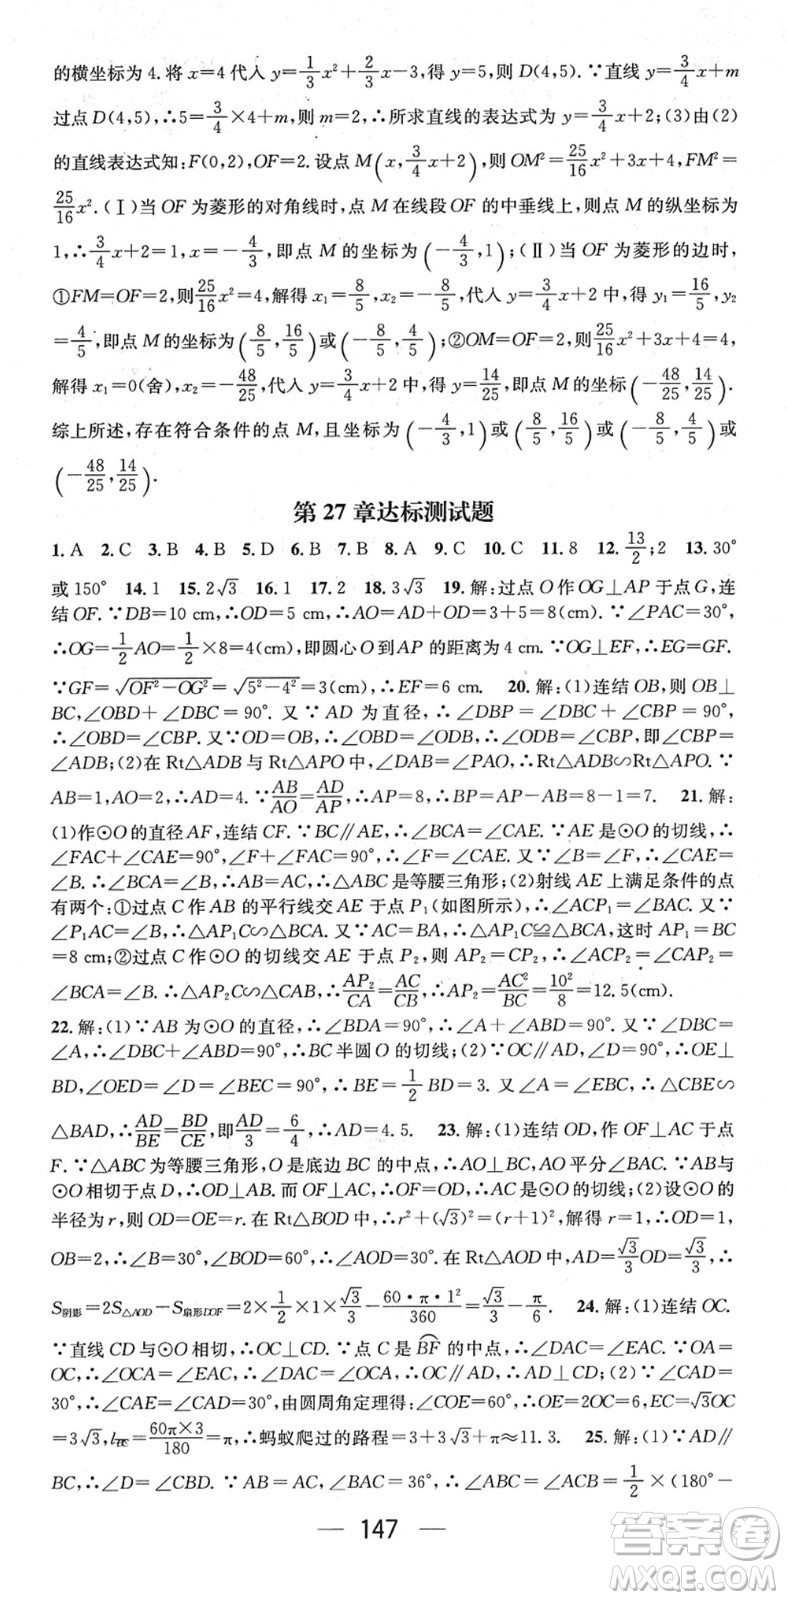 的横坐标为4.将x=4代入y=1/3x²+2/3x-3,得y=5,则D(4,5).∵直线y=3/4x+m
过点D(4,5),∴5=3/4×4+m,则m=2,∴所求直线的表达式为y=3/4x+2;(3)由(2)
的直线表达式知:F(0,2),OF=2.设点M(x,3/4x+2),则OM²=25/16x²+3x+4,FM²=
25/16x².(Ⅰ)当OF为菱形的对角线时,点M在线段OF的中垂线上,则点M的纵坐标为
1,∴3/4x+2=1,x=-4/3,即点M的坐标为(-4/3,1);(Ⅱ)当OF为菱形的边时,
①FM=OF=2,则25/16x²=4,解得x₁=8/5,x₂=-8/5,代入y=3/4x+2得y₁=16/5,y₂
=4/5,即点M的坐标为(8/5,16/5)或(-8/5,4/5);②OM=OF=2,则25/16x²+3x+4=4,
解得x₁=0(舍),x₂=-48/25,代入y=3/4x+2得y=14/25,即点M的坐标(-48/25,14/25).
综上所述,存在符合条件的点M,且坐标为(-4/3,1)或(8/5,16/5)或(-8/5,4/5)或
(-48/25,14/25).
第27章达标测试题
1.A 2.C 3.B 4.B 5.D 6.B 7.B 8.A 9.C 10.C 11.8 12.13/2;2 13.30°
或150° 14.1 15.2√3 16.1 17.2 18.3√3 19.解:过点O作OG⊥AP于点G,连
结OF.∵DB=10 cm,∴OD=5 cm,∴AO=AD+OD=3+5=8(cm).∵∠PAC=30°,
∴OG=1/2AO=1/2×8=4(cm),即圆心O到AP的距离为4 cm.∵OG⊥EF,∴EG=GF.
∵GF=√(OF²-OG²)=√(5²-4²)=3(cm),∴EF=6 cm. 20.解:(1)连结OB,则OB⊥
BC,∠OBD+∠DBC=90°.又∵AD为直径,∴∠DBP=∠DBC+∠CBP=90°,
∴∠OBD=∠CBP.又∵OD=OB,∴∠OBD=∠ODB,∴∠ODB=∠CBP,即∠ADB=
∠CBP;(2)在Rt△ADB与Rt△APO中,∠DAB=∠PAO,∴Rt△ADB∽Rt△APO.∵
AB=1,AO=2,∴AD=4.∵AB/AO=AD/AP,∴AP=8,∴BP=AP-AB=8-1=7. 21.解:
(1)作⊙O的直径AF,连结CF.∵BC∥AE,∴∠BCA=∠CAE.∵AE是⊙O的切线,∴
∠FAC+∠CAE=90°,∠F+∠FAC=90°,∴∠F=∠CAE.又∵∠F=∠B,∴∠CAE=
∠B.∴∠BCA=∠B,∴AB=AC,∴△ABC是等腰三角形;(2)射线AE上满足条件的点
有两个:①过点C作AB的平行线交AE于点P₁(如图所示),∴∠ACP₁=∠BAC.又∵
∠P₁AC=∠B,∴△AP₁C∽△BCA.又∵AC=BA,∴△AP₁C≌△BCA,这时AP₁=BC
=8 cm;②过点C作⊙O的切线交AE于点P₂,∴∠AP₂C=∠BAC,∴∠ACP₂=∠CAP₂
=∠BCA=∠B.∴△AP₂C∽△CAB,∴AP₂/CA=AC/CB,∴AP₂=AC²/BC=10²/8=12.5(cm).
22.解:(1)∵AB为⊙O的直径,∴∠BDA=90°,∴∠A+∠ABD=90°.又∵∠DBC=
∠A,∴∠DBC+∠ABD=90°,∴BC半圆O的切线;(2)∵OC∥AD,∠D=90°,∴OE⊥
BD,∠OED=∠D=∠BEC=90°,∴BE=1/2BD=3.又∵∠A=∠DBC,∴∠CBE∽
△BAD,∴AD/BE=BD/CE,即AD/3=6/4,∴AD=4.5. 23.解:(1)连结OD,作OF⊥AC于点
F.∵△ABC为等腰三角形,O是底边BC的中点,∴AO⊥BC,AO平分∠BAC.又∵AB与
⊙O相切于点D,∴OD⊥AB.而OF⊥AC,∴OF=OD,∴AC是⊙O的切线;(2)设⊙O的
半径为r,则OD=OE=r.在Rt△BOD中,∴r²+(√3)²=(r+1)²,解得r=1,∴OD=1,
OB=2,∴∠B=30°,∠BOD=60°,∴∠AOD=30°.在Rt△AOD中,AD=√3/3OD=√3/3,∴
S阴影=2S△AOD-S扇形DOF=2×1/2×1×√3/3-60·π·1²/360=√3/3-π/6. 24.解:(1)连结OC.
∵直线CD与⊙O相切,∴OC⊥CD.∵点C是BF的中点,∴∠DAC=∠EAC.∵OA=
OC,∴∠OCA=∠EAC,∴∠DAC=∠OCA,∴OC∥AD,∴AD⊥CD;(2)∵∠CAD=
30°,∴∠CAE=∠CAD=30°,由圆周角定理得:∠COE=60°,∴OE=2OC=6,EC=√3OC
=3√3,l=60π×3/180=π,∴蚂蚁爬过的路程=3+3√3+π≈11.3. 25.解:(1)∵AD∥
BC,∴∠D=∠CBD.∵AB=AC,∠BAC=36°,∴∠ABC=∠ACB=1/2×(180°-
147
答案圈
MXQE.COM